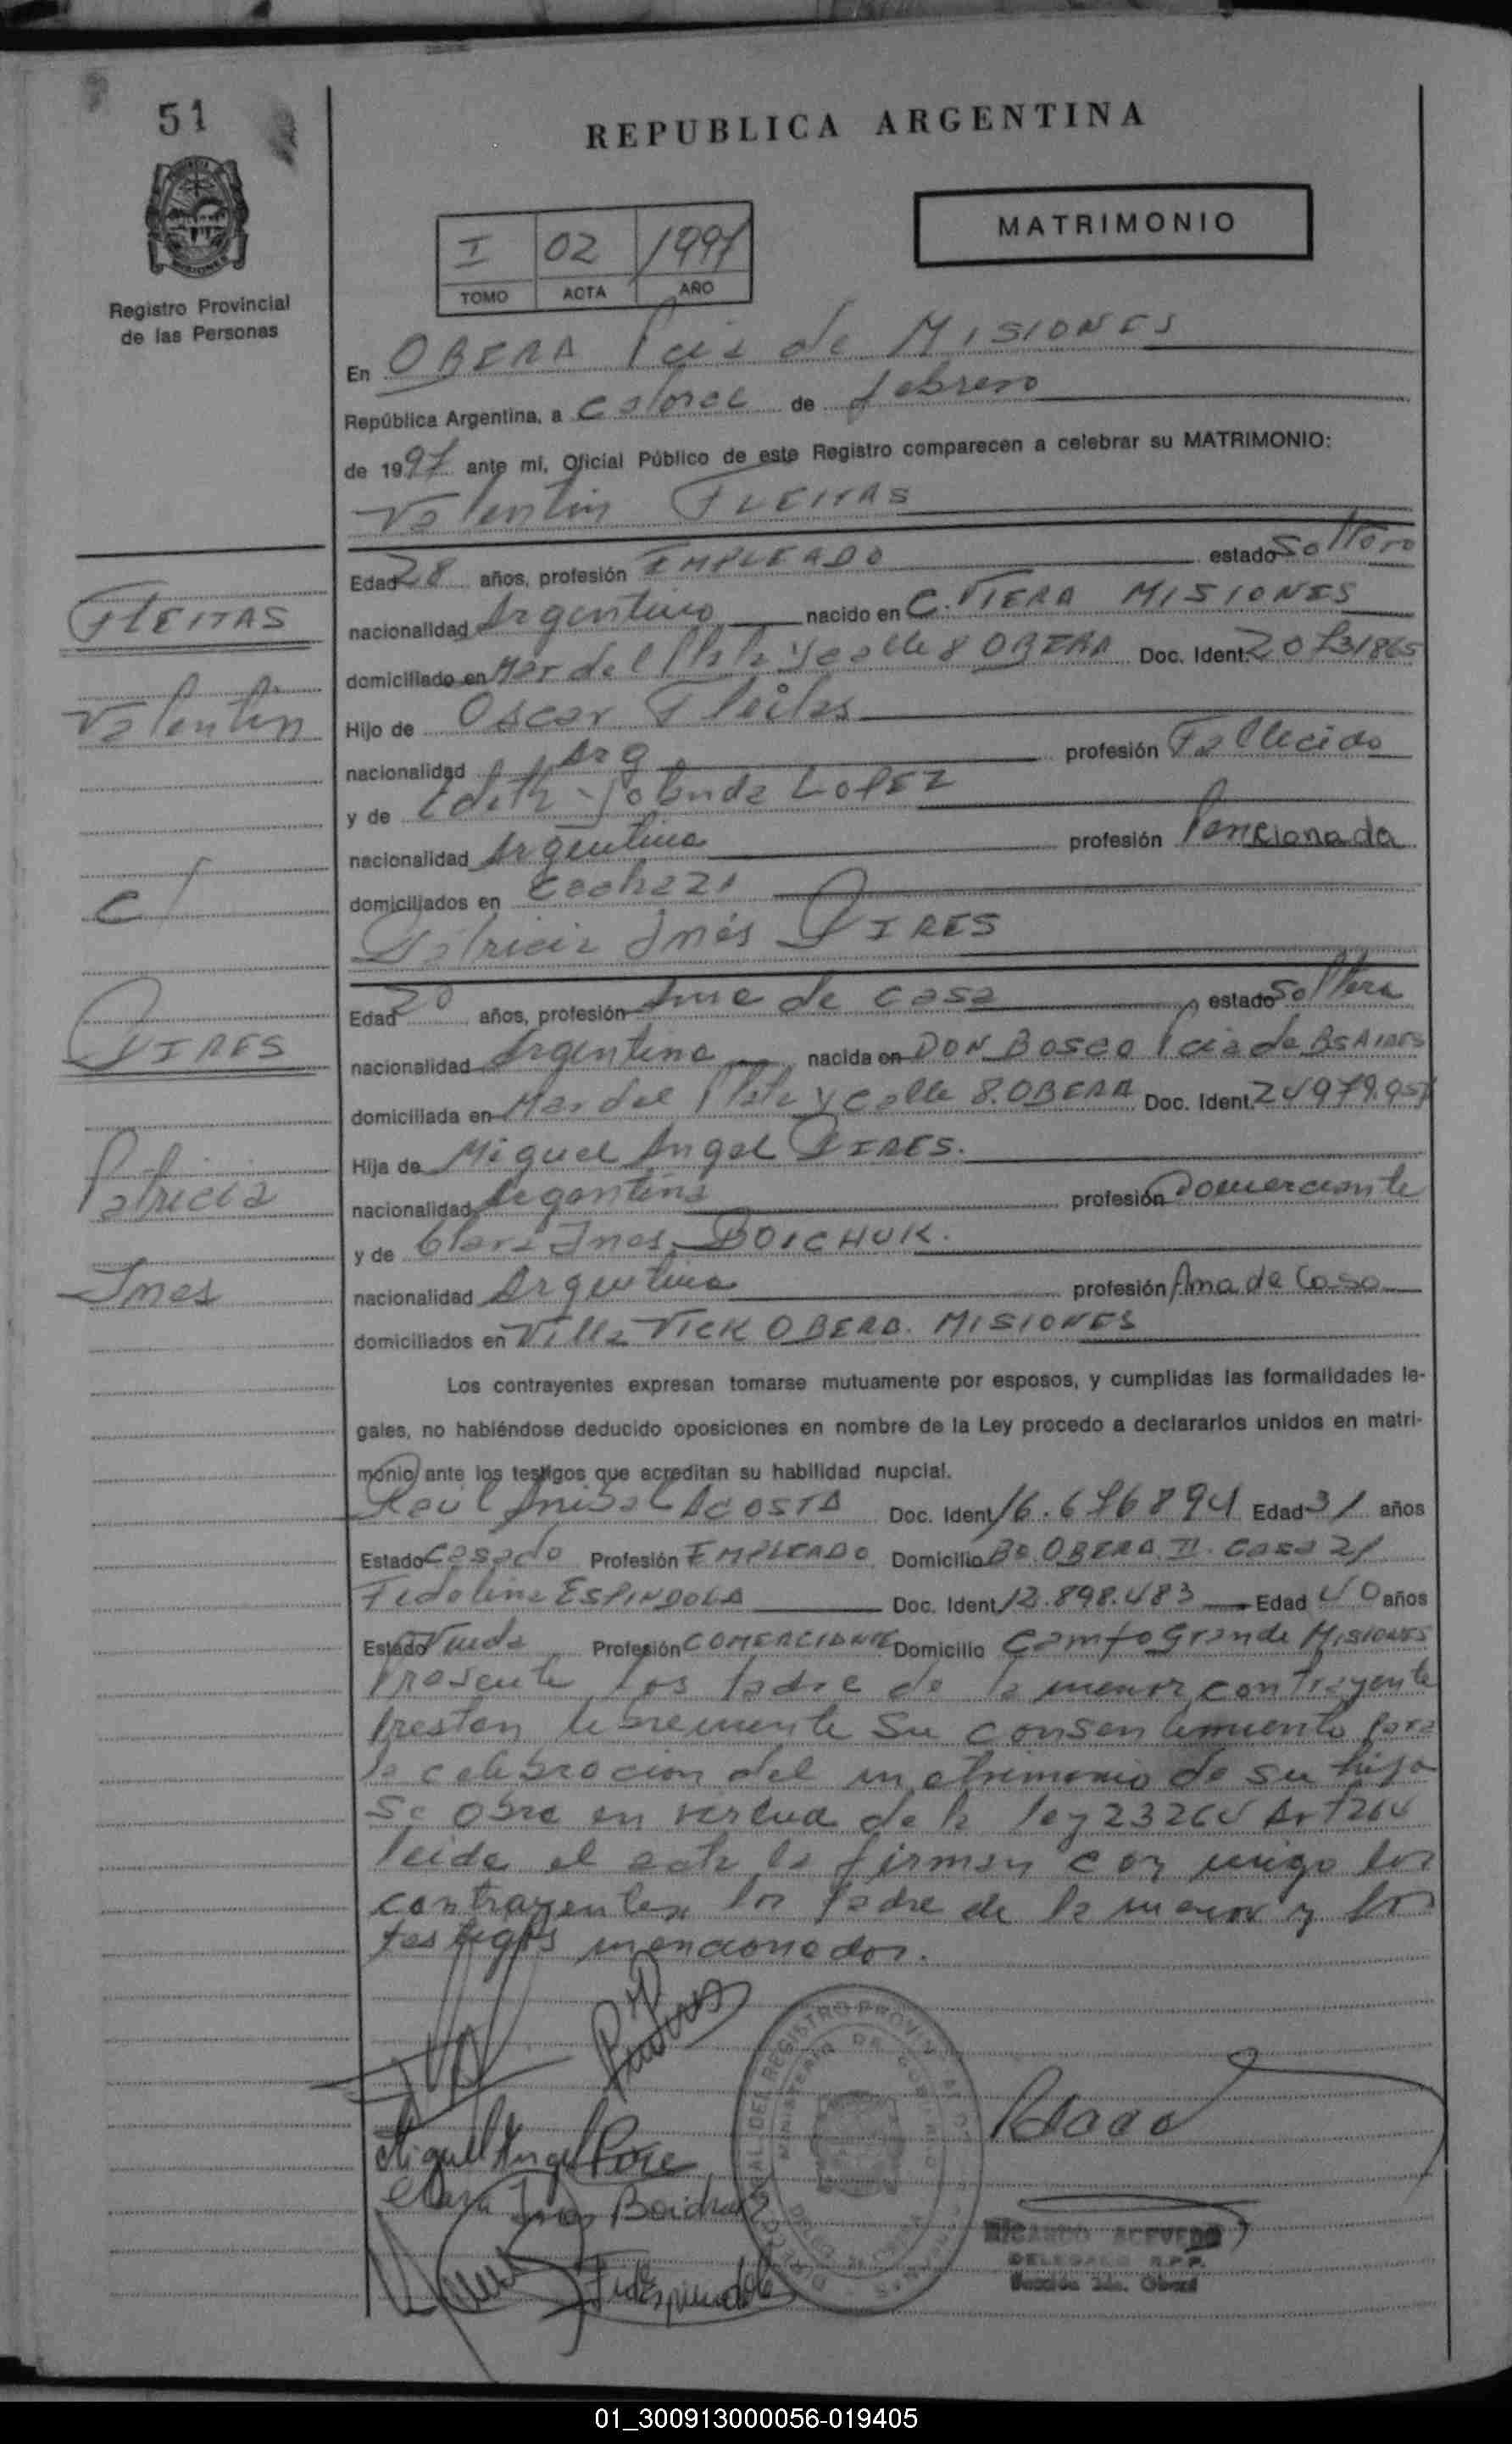 51
REPUBLICA ARGENTINA
MATRIMONIO
I 02 1997
TOMO ACTA AÑO
Registro Provincial
de las Personas
En OBERA Pcia de MISIONES
República Argentina, a catorce de febrero
de 1997 ante mí, Oficial Público de este Registro comparecen a celebrar su MATRIMONIO:
Valentin FLEITAS
Edad 28 años, profesión EMPLEADO estado Soltero
FLEITAS
nacionalidad Argentino nacido en C. VIERA MISIONES
domiciliado en Mar del Plata y calle 8 OBERA Doc. Ident. 20731865
Valentin
Hijo de Oscar Fleitas
nacionalidad Arg profesión Fallecido
y de Edith Yolanda LOPEZ
nacionalidad Argentina profesión Pencionada
c/
domiciliados en
Patricia Inés PIRES
Edad 20 años, profesión Ama de casa estado Soltera
PIRES
nacionalidad Argentina nacida en DON BOSCO Pcia de BS AIRES
domiciliada en Mar del Plata y calle 8. OBERA Doc. Ident. 24979.957
Hija de Miguel Angel PIRES.
Patricia
nacionalidad Argentina profesión Comerciante
y de Clara Ines BOICHUK.
Ines
nacionalidad Argentina profesión Ama de Casa
domiciliados en Villa VICK OBERA. MISIONES
Los contrayentes expresan tomarse mutuamente por esposos, y cumplidas las formalidades le-
gales, no habiéndose deducido oposiciones en nombre de la Ley procedo a declararlos unidos en matri-
monio ante los testigos que acreditan su habilidad nupcial.
Raúl Anibal ACOSTA Doc. Ident. 16.676894 Edad 31 años
Estado Casado Profesión EMPLEADO Domicilio Bo OBERA II. Casa 21
Fidelina ESPINDOLA Doc. Ident. 12.898.483 Edad 40 años
Estado Viuda Profesión COMERCIANTE Domicilio Campo Grande MISIONES
Presente los padre de la menor contrayente
prestan libremente su consentimiento para
la celebracion del matrimonio de su hija
Se obra en virtud de la ley 23264 Art 264
leida el acta la firman con migo los
contrayentes los padre de la menor y los
testigos mencionados.
Miguel Angel Pire
Clara Ines Boichuk
Fide Espindola
RICARDO ACEVEDO
DELEGADO R.P.P.
Sección 2da. Oberá
01_300913000056-019405